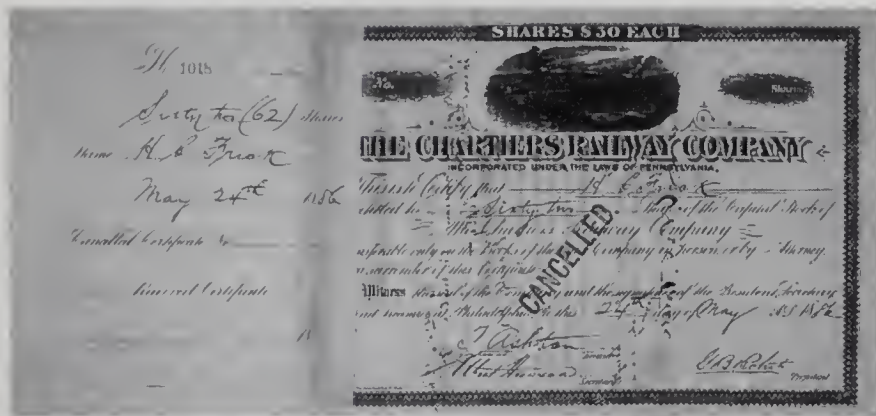 1018
Sixty two (62) Shares
Name H C Frick
May 24th 1886
Cancelled Certificate No
Renewed Certificate
18
SHARES $50 EACH
No.
Shares
THE CHARTIERS RAILWAY COMPANY
INCORPORATED UNDER THE LAWS OF PENNSYLVANIA.
This is to Certify that H C Frick
is entitled to Sixty two Shares of the Capital Stock of
The Chartiers Railway Company
transferable only on the Books of the Company in Person or by Attorney
on surrender of this Certificate
CANCELLED
Witness the seal of the Company and the signatures of the President, Treasurer
and Secretary at Philadelphia the 24 day of May 1886
Treasurer
Secretary
President